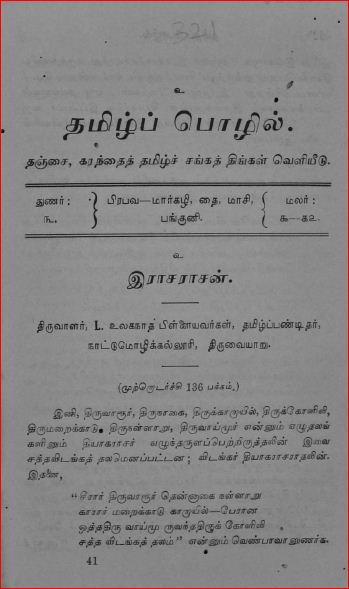 324
உ
தமிழ்ப் பொழில்.
தஞ்சை, கரந்தைத் தமிழ்ச் சங்கத் திங்கள் வெளியீடு.
துணர் : } பிரபவ—மார்கழி, தை, மாசி, { மலர் :
௩. பங்குனி. ௯—௧௨.
உ
இராசராசன்.
திருவாளர், L. உலகநாத பிள்ளையவர்கள், தமிழ்ப்பண்டிதர்,
நாட்டுமொழிக்கல்லூரி, திருவையாறு.
(முற்றொடர்ச்சி 136 பக்கம்.)
இனி, திருவாரூர், திருநாகை, திருக்காறாயில், திருக்கோளிலி,
திருமறைக்காடு, திருநள்ளாறு, திருவாய்மூர் என்னும் எழுதலங்
களினும் தியாகராசர் எழுந்தருளப்பெற்றிருத்தலின் இவை
சத்தவிடங்கத் தலமெனப்பட்டன ; விடங்கர் தியாகராசராதலின்.
இதனை,
“சீரார் திருவாரூர் தென்னாகை நள்ளாறு
காரார் மறைக்காடு காறாயில்—பேரான
ஒத்ததிரு வாய்மூ ருவந்ததிருக் கோளிலி
சத்த விடங்கத் தலம்” என்னும் வெண்பாவானுணர்க.
41